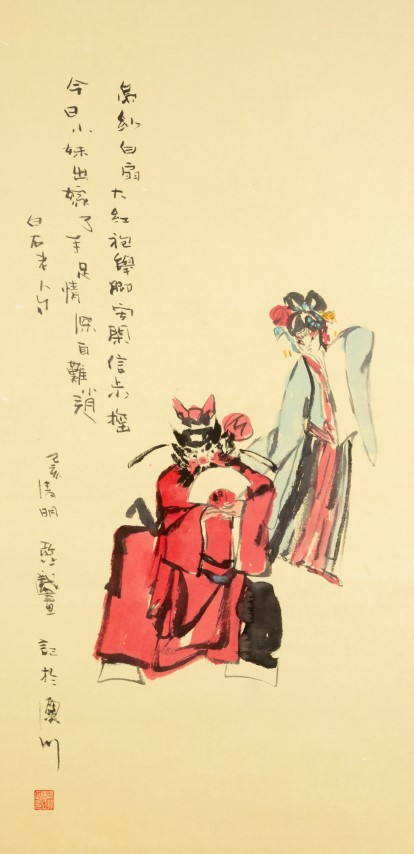 烏紗白扇大紅袍舉腳安閑信步搖
今日小妹出嫁了手足情深自難逍
白石老人句
乙亥清明 畫記於廣州